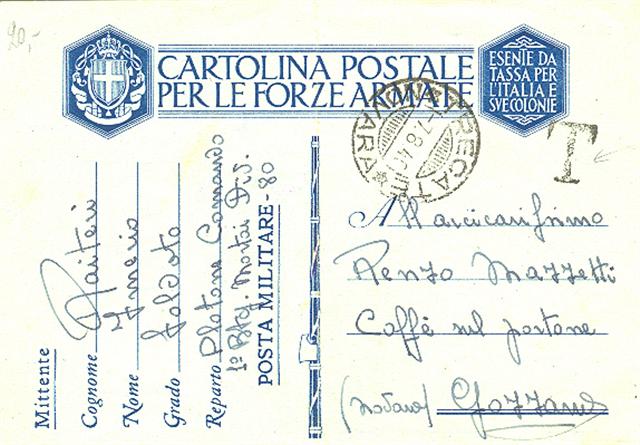 20,-
CARTOLINA POSTALE
PER LE FORZE ARMATE
ESENTE DA
TASSA PER
L'ITALIA E
SVE COLONIE
TRECATE
T
Mittente
Cognome Raiteri
Nome Imerio
Grado Soldato
Reparto Plotone Comando
1° Btg. Mortai Div.
POSTA MILITARE - 80
All'arcicarissimo
Renzo Mazzetti
Caffè sul portone
(Novara) Gozzano